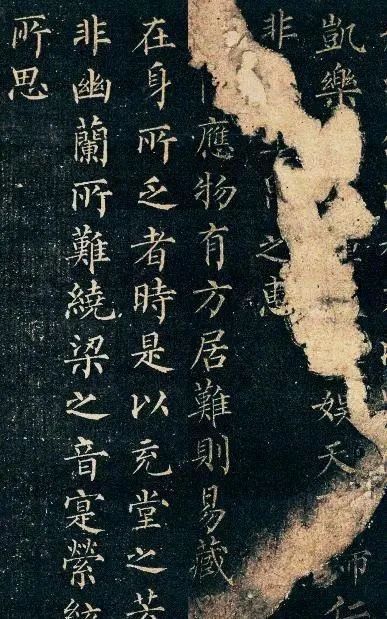 凱樂娛天
非之惠
應物有方居難則易藏
在身所乏者時是以充堂之芳
非幽蘭所難繞梁之音寔縈
所思